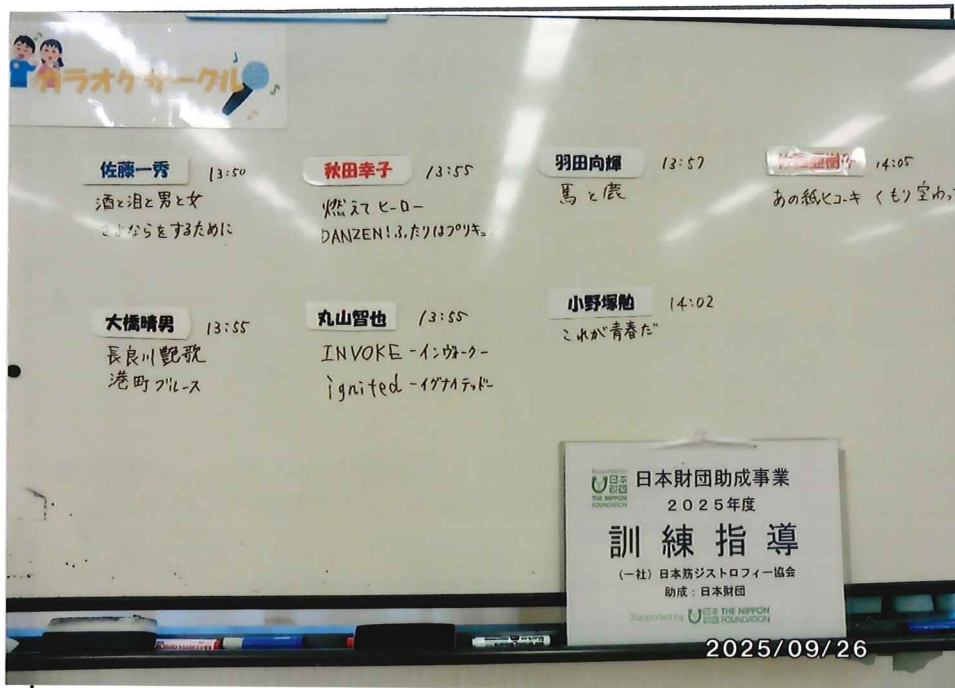 カラオケサークル
佐藤一秀 13:50
酒と泪と男と女
さよならをするために
秋田幸子 13:55
燃えてヒーロー
DANZEN!ふたりはプリキュ
羽田向輝 13:57
馬と鹿
14:05
あの紙ヒコーキ くもり空わっ
大橋晴男 13:55
長良川艶歌
港町ブルース
丸山智也 13:55
INVOKE -インヴォーク-
ignited -イグナイテッド-
小野塚勉 14:02
これが青春だ
Supported by 日本財団 THE NIPPON FOUNDATION
日本財団助成事業
2025年度
訓練指導
(一社)日本筋ジストロフィー協会
助成:日本財団
Supported by 日本財団 THE NIPPON FOUNDATION
2025/09/26